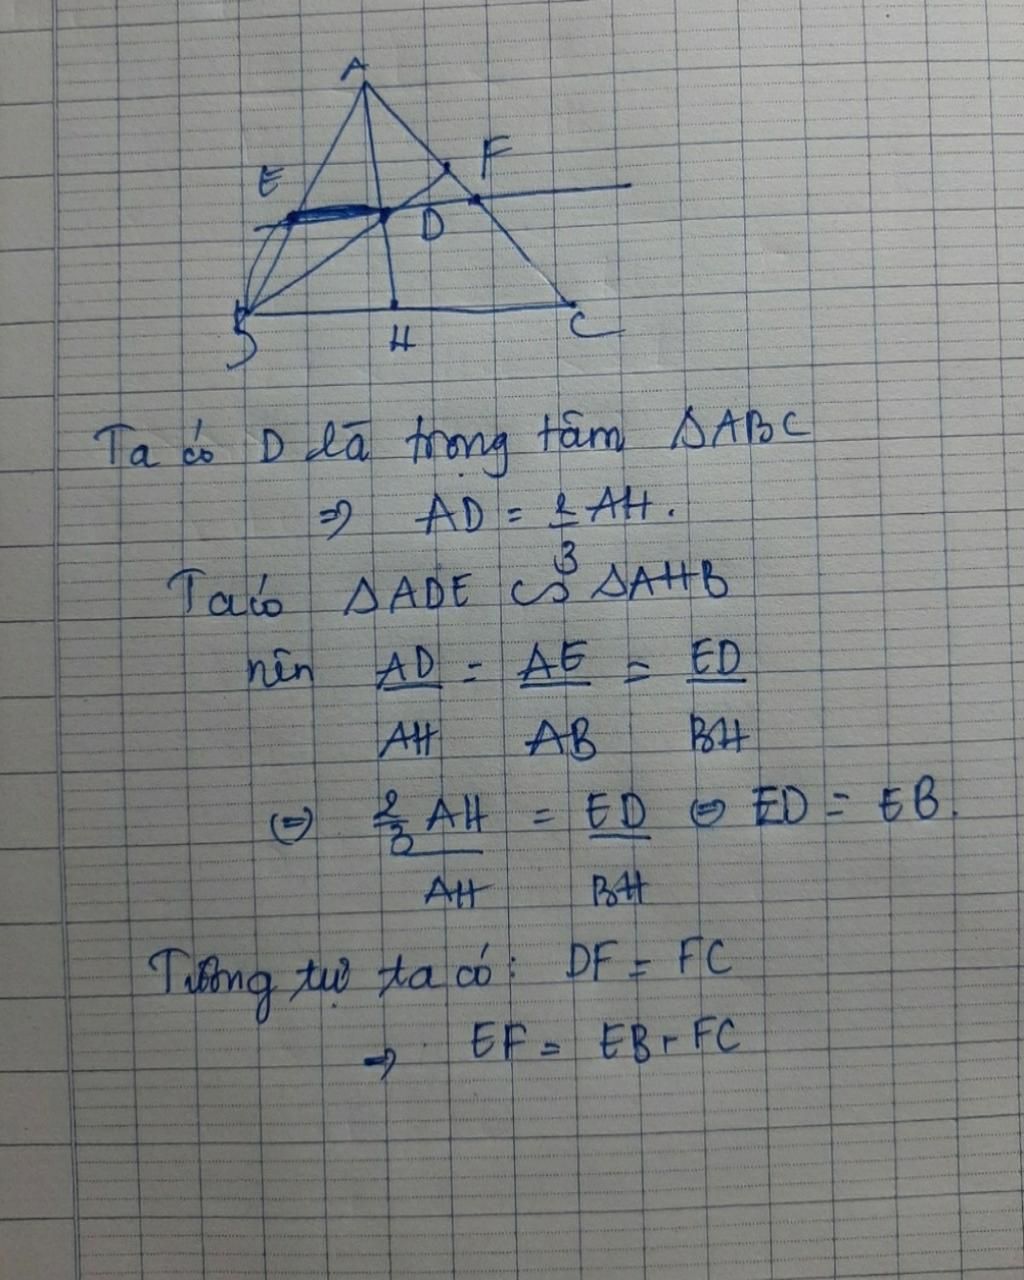 A
E
F
D
B
H
C
Ta có D là trọng tâm ΔABC
⇒ AD = 2/3 AH.
Ta có ΔADE ∽ ΔAHB
nên AD/AH = AE/AB = ED/BH
⇔ 2/3 AH/AH = ED/BH ⇔ ED = EB.
Tương tự ta có: DF = FC
⇒ EF = EB + FC